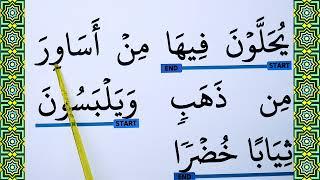 يُحَلَّوْنَ فِيهَا مِنْ أَسَاوِرَ
END START
مِن ذَهَبٍ وَيَلْبَسُونَ
START
ثِيَابًا خُضْرًا
END